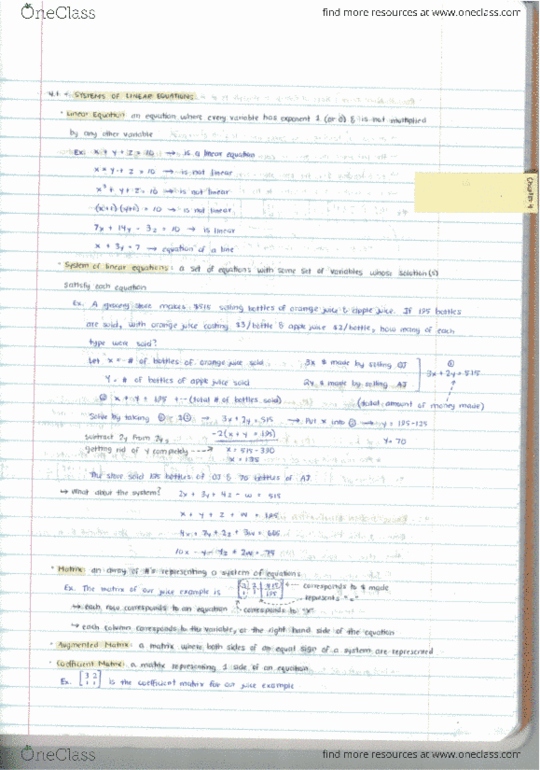 OneClass find more resources at www.oneclass.com
4.1 - SYSTEMS OF LINEAR EQUATIONS
• Linear Equation: an equation where every variable has exponent 1 (or 0) & is not multiplied
by any other variable
Ex: x + y + z = 10 → is a linear equation
x × y + z = 10 → is not linear
x² + y + z = 10 → is not linear
(x+1)(y+1) = 10 → is not linear
7x + 14y - 3z = 10 → is linear
x + 3y = 7 → equation of a line
Chapter 4
• System of linear equations: a set of equations with some set of variables whose solution(s)
satisfy each equation
Ex. A grocery store makes $515 selling bottles of orange juice & apple juice. If 195 bottles
are sold, with orange juice costing $3/bottle & apple juice $2/bottle, how many of each
type were sold?
Let x = # of bottles of orange juice sold 3x $ made by selling OJ
y = # of bottles of apple juice sold 2y $ made by selling AJ
3x + 2y = 515
x + y = 195 ← (total # of bottles sold) (total amount of money made)
Solve by taking → 3x + 2y = 515 → Put x into → y = 195-125
subtract 2y from 2y, -2(x + y = 195) y = 70
getting rid of y completely ---> x = 515 - 390
x = 125
The store sold 125 bottles of OJ & 70 bottles of AJ
→ What about the system? 2x + 3y + 4z - w = 515
x + y + z + w = 195
10x - y
• Matrix: an array of #'s representing a system of equations
Ex. The matrix of our juice example is corresponds to $ made
represents "="
→ each row corresponds to an equation corresponds to
→ each column corresponds to the variable, or the right hand side of the equation
• Augmented Matrix: a matrix where both sides of an equal sign of a system are represented
• Coefficient Matrix: a matrix representing 1 side of an equation
Ex. [3 2
1 1] is the coefficient matrix for our juice example
OneClass find more resources at www.oneclass.com